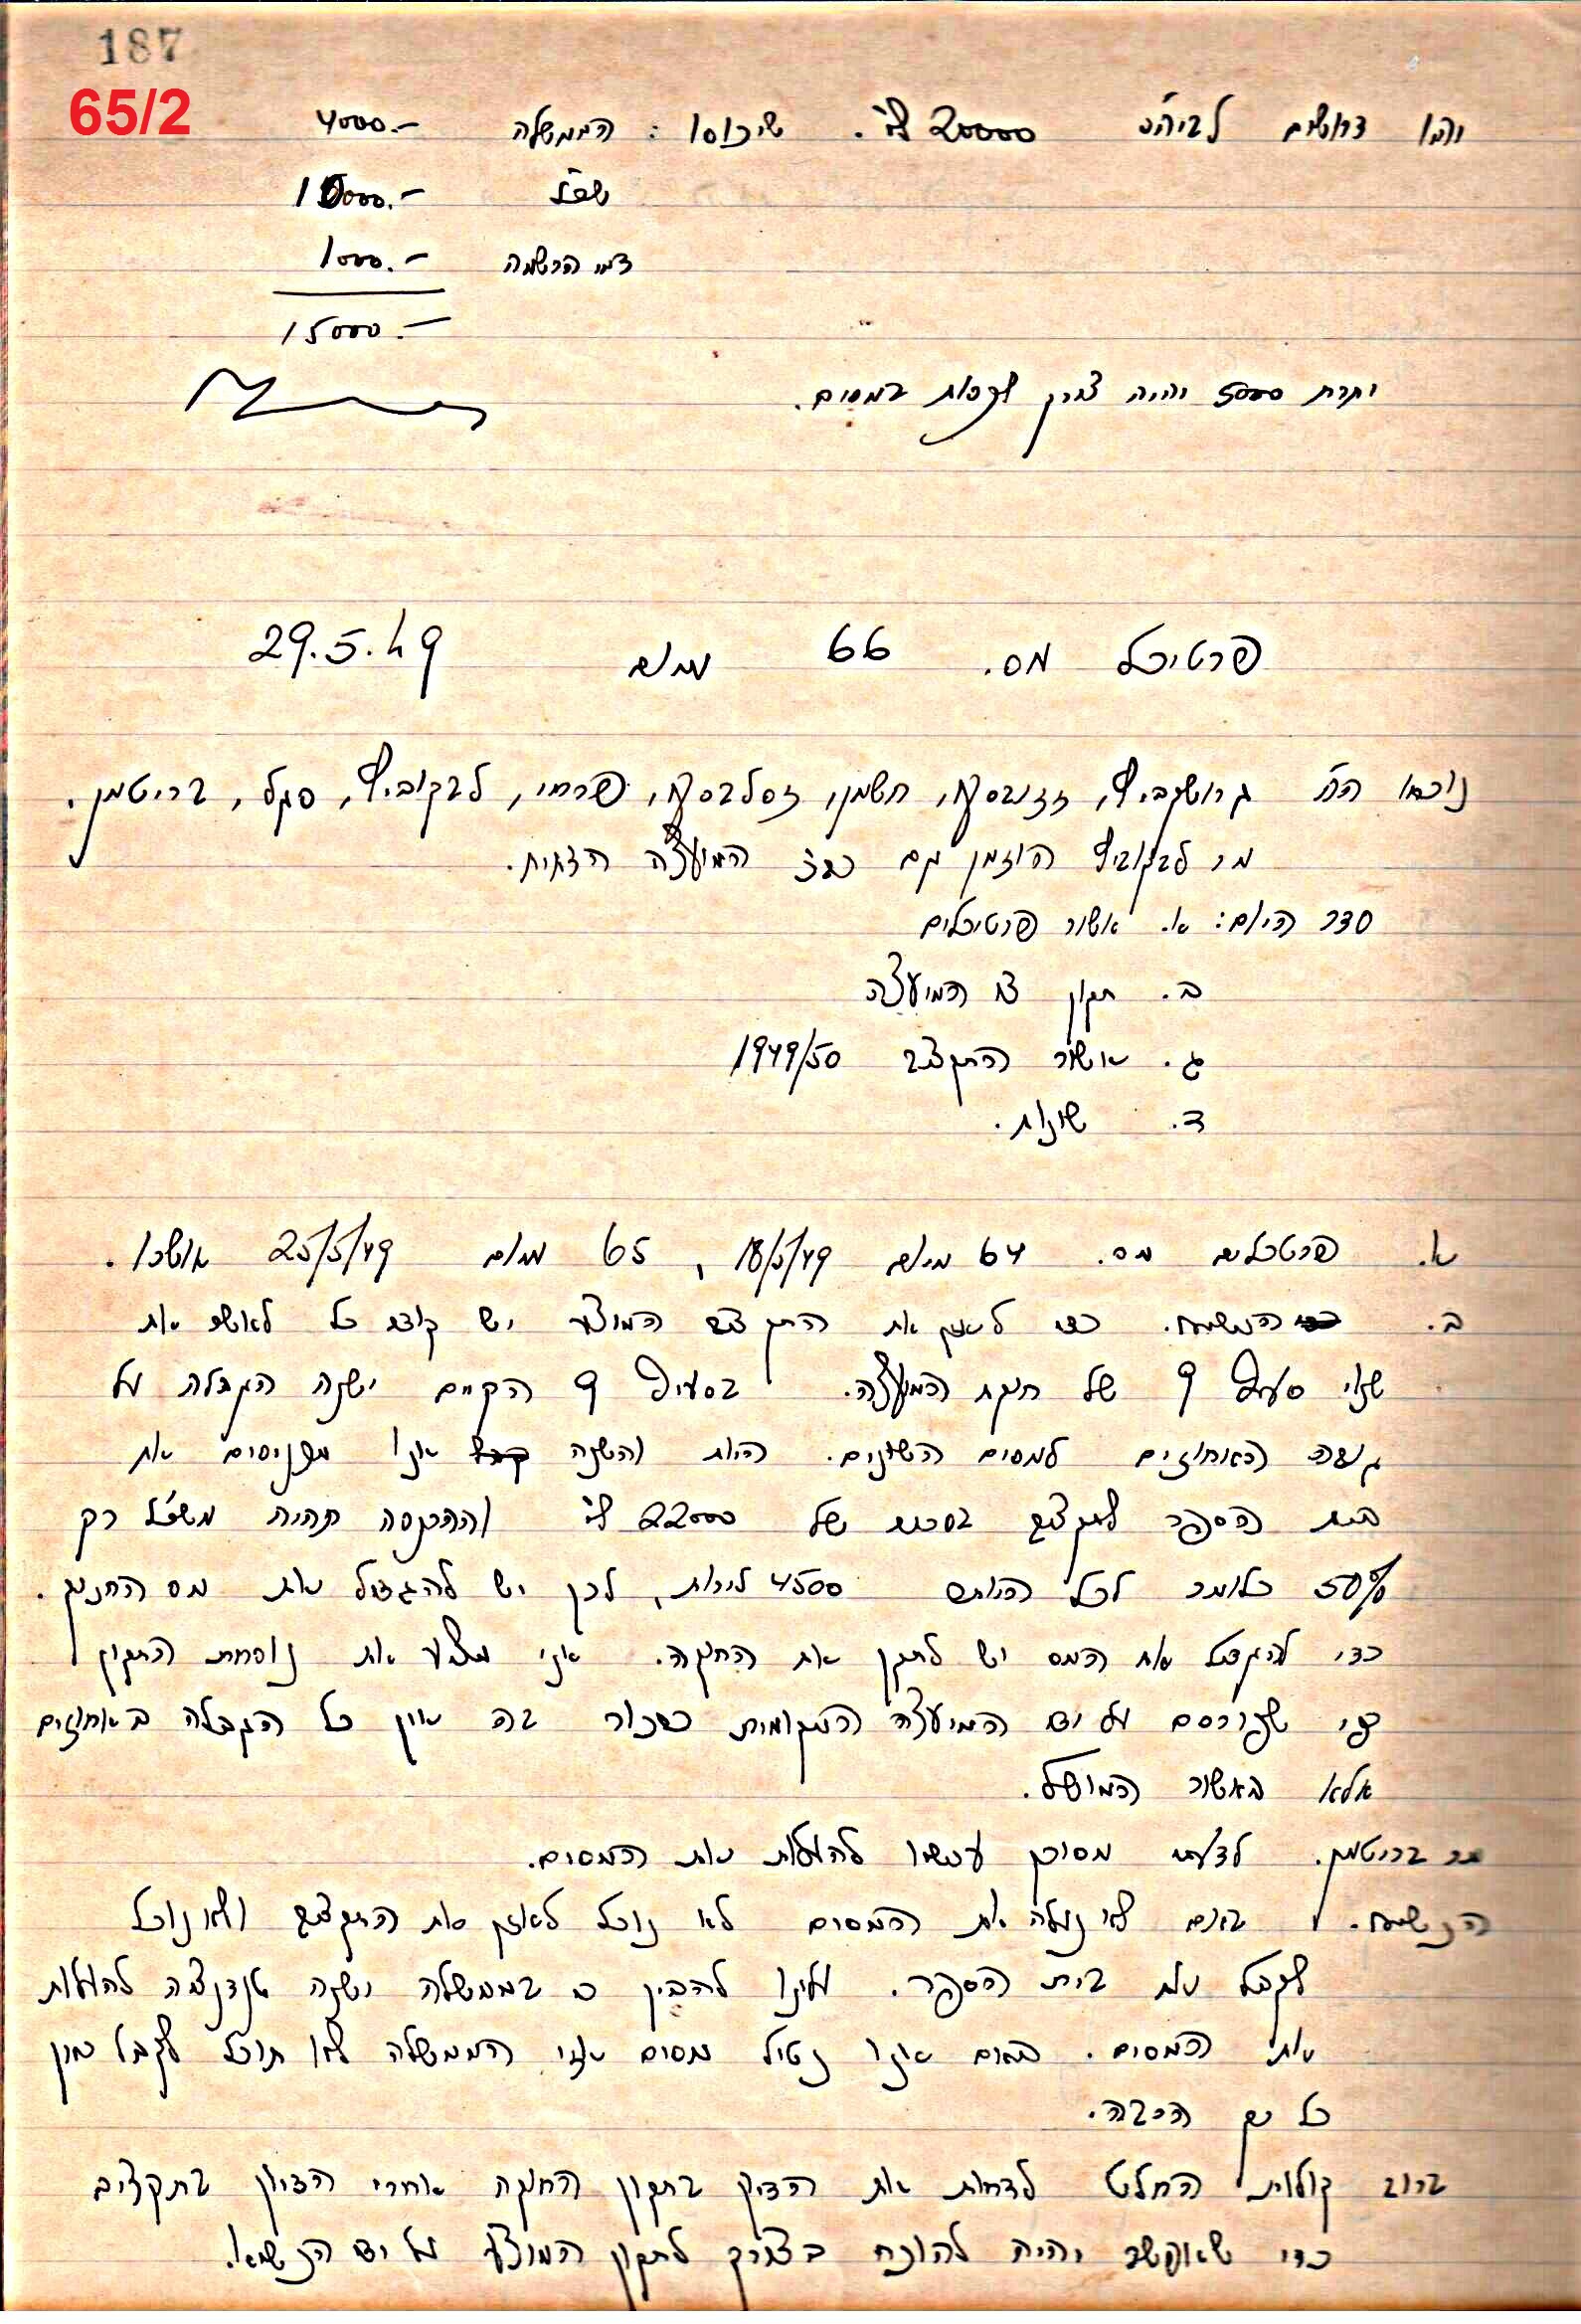 187
65/2
והנו דרושים לביה"ס 20000 ל"י. שיכוסו: הממשלה 4000.-
שכ"ל 10000.-
דמי הרשמה 1000.-
15000.-
יתרת 5000 יהיה צורך לכסות במסים.
פרטיכל מס. 66 מיום 29.5.49
נוכחו הה' גרושקביץ, חשמן, זסלבסקי, פרחי, לבקוביץ, סגל, בריטמן.
מר לבקוביץ הוזמן גם כנצ' המועצה הדתית.
סדר היום: א. אשור פרטיכלים
ב. תקון צו המועצה
ג. אשור התקציב 1949/50
ד. שונות.
א. פרטיכלים מס. 64 מיום 18/5/49, 65 מיום 25/5/49 אושרו.
ב. הנשיא. כדי לאזן את התקציב המוצע יש קודם כל לאשר את
שנוי סעיף 9 של חוקת המועצה. בסעיף 9 הקיים ישנה הגבלה על
גובה האחוזים למסים השונים. היות והשנה אנו מכניסים את
בית הספר לתקציב בסכום של 22000 ל"י וההכנסה תהיה משכ"ל רק
50% כלומר לכל היותר 4500 לירות, לכן יש להגדיל את מס החנוך.
כדי להגדיל את המס יש לתקן את החוקה. אני מציע את נוסחת התקון
כפי שפורסם על ידי המועצה המקומית כאמור בה אין כל הגבלה באחוזים
אלא באשור המושל.
מר בריטמן. לדעתי מסוכן עכשיו להעלות את המסים.
הנשיא. באם לא נעלה את המסים לא נוכל לאזן את התקציב ולא נוכל
לקבל את בית הספר. עלינו להבין כי בממשלה ישנה טנדנציה להעלות
את המסים. באם איננו נטיל מסים אזי הממשלה לא תוכל לקבל כאן
כל כך הרבה.
ברוב קולות הוחלט לדחות את הדיון בתקון החוקה אחרי הדיון בתקציב
כדי שאפשר יהיה להוכח בצורך לתקון המוצע על ידי הנשיא.